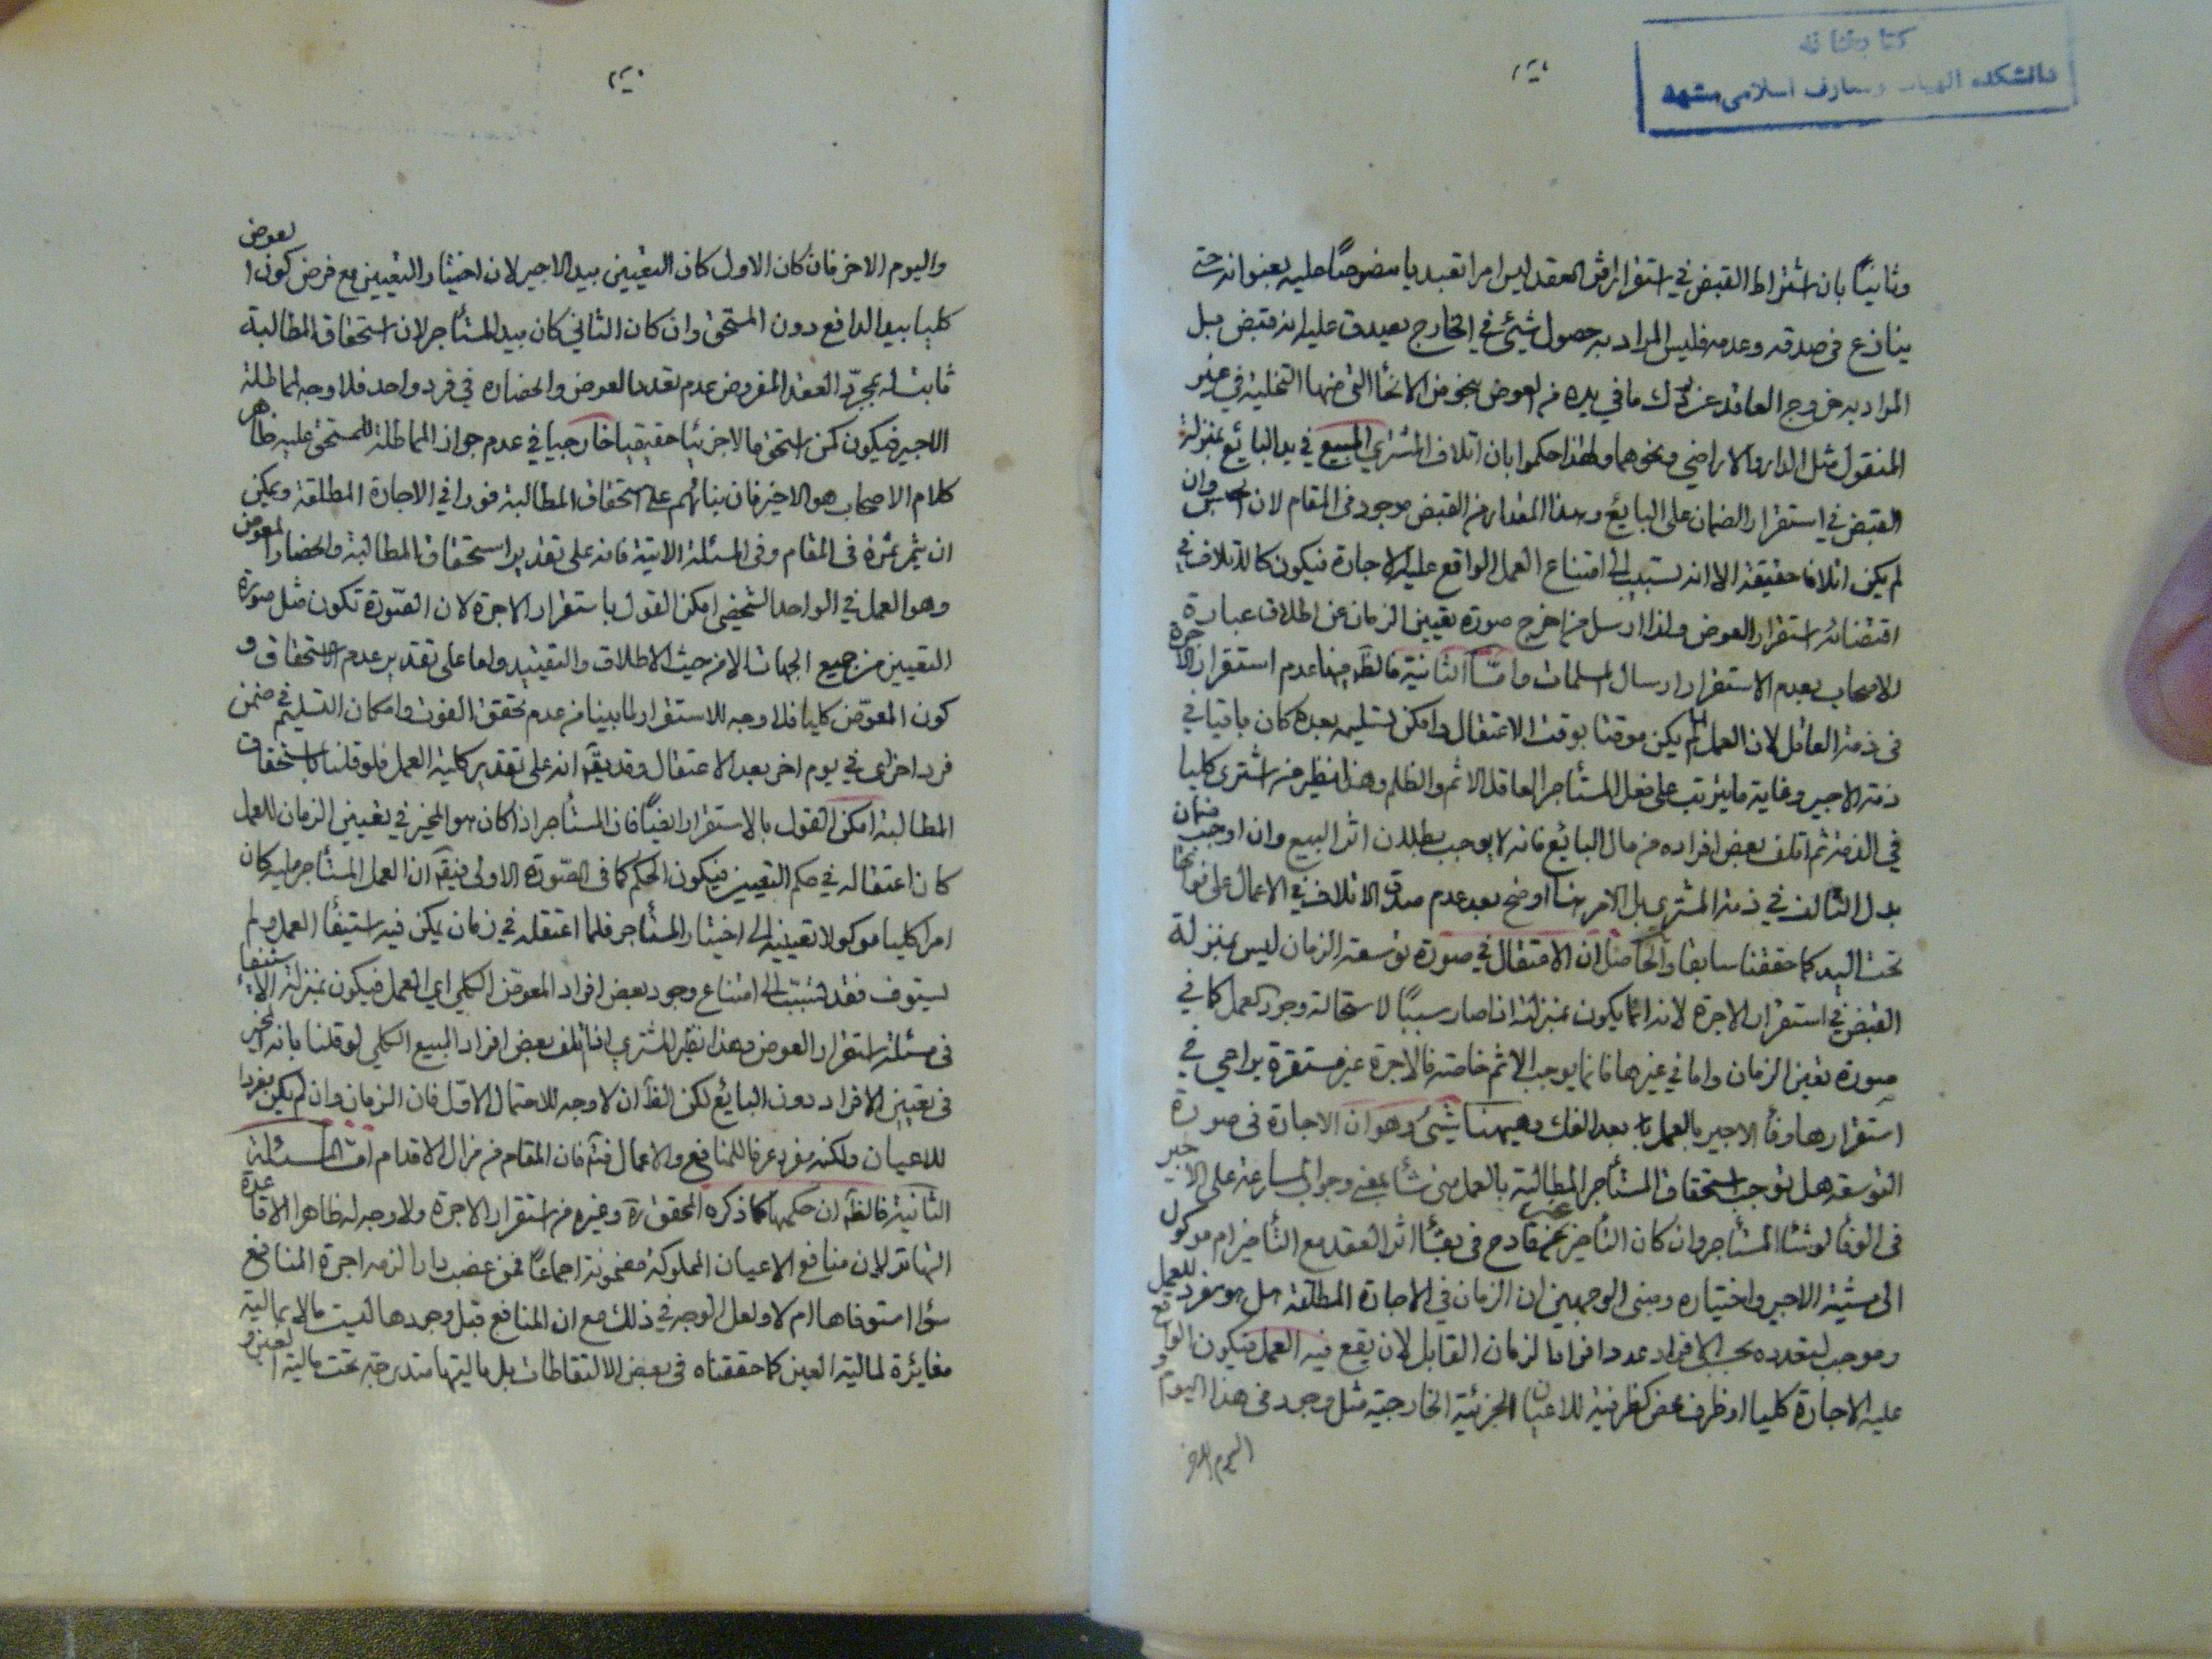 كتابخانه
دانشكده الهيات ومعارف اسلامى مشهد
وثانيًا بان اشتراط القبض في استقرار اثر العقد ليس امرا تعبديا منصوصًا عليه بعنوانه حتى
ينازع فى صدقه وعدمه فليس المراد به حصول شيئ في الخارج يصدق عليه انه قبض بل
المراد به خروج العاقد عن ما في يده من العوض بنحو من الانحاء التى منها التخلية في غير
المنقول مثل الدار والاراضي ونحوهما ولهذا حكموا بان اتلاف المشتري المبيع في يد البايع بمنزلة
القبض في استقرار الضمان على البايع وهذا المقدار من القبض موجود فى المقام لان الحبس وان
لم يكن اتلافا حقيقة الا انه تسبيب الى امتناع العمل الواقع عليه الاجارة فيكون كالاتلاف في
اقتضائه استقرار العوض ولذا ارسل من اخرج صورة تعيين الزمان عن اطلاق عبارة
الاصحاب بعدم الاستقرار ارسال المسلمات وامّا الثانية فالظ فيها عدم استقرار الاجرة
فى ذمة العاقل لان العمل لما لم يكن موقتا بوقت الاعتقال وامكن تسليمه بعده كان باقيا في
ذمة الاجير وغاية ما يترتب على فعل المستأجر العاقل الاثم والظلم وهذا نظير من اشترى كليا
في الذمة ثم اتلف بعض افراده من مال البايع فانه لا يوجب بطلان اثر البيع وان اوجب ضمان
بدل التالف في ذمة المشتري بل الامر هنا اوضح بعد عدم صدق الاتلاف في الاعمال على
تحت اليد كما حققنا سابقا والحاصل ان الاعتقال في صورة توسعة الزمان ليس بمنزلة
القبض في استقرار الاجرة لانه انما يكون بمنزلته اذا صار سببًا لاستحالة وجود العمل كما في
صورة تعين الزمان واما في غيرها فانما يوجب الاثم خاصة فالاجرة غير مستقرة يراعي في
استقرارها وفاء الاجير بالعمل بعد الفك وهيهنا شئ وهو ان الاجارة فى صورة
التوسعة هل توجب استحقاق المستأجر المطالبة بالعمل متى شاء بمعنى وجوب المسارعة على الاجير
فى الوفاء لو شاء المستأجر وان كان التأخير غير قادح فى بقاء اثر العقد مع التأخير ام موكول
الى مشية الاجير واختياره ومبنى الوجهين ان الزمان في الاجارة المطلقة هل هو مفرد للعمل
وموجب لتعدده بحسب الافراد عدد افراد الزمان القابل لان يقع فيه العمل فيكون الواقع
عليه الاجارة كليا او ظرف محض كظرفية للاعيان الجزئية الخارجية مثل وجود في هذا اليوم و
اليوم الاخر
واليوم الاخر فان كان الاول كان التعيين بيد الاجير لان اختيار التعيين مع فرض كون العوض
كليا بيد الدافع دون المستحق وان كان الثاني كان بيد المستأجر لان استحقاق المطالبة
ثابتة له بمجرّد العقد المفروض عدم تعدد العوض وانحصاره في فرد واحد فلا وجه لمماطلة
الاجير فيكون كمن استحق مالا جزئيا حقيقيا خارجيا في عدم جواز المماطلة للمستحق عليه ظاهر
كلام الاصحاب هو الاخير فان بنائهم على استحقاق المطالبة فورا في الاجارة المطلقة ويمكن
ان يثمر ثمرة فى المقام وفى المسئلة الاتية فانه على تقدير استحقاق المطالبة وانحصار المعوض
وهو العمل في الواحد الشخصي امكن القول باستقرار الاجرة لان الصّورة تكون مثل صورة
التعيين من جميع الجهات الا من حيث الاطلاق والتقييد واما على تقدير عدم الاستحقاق و
كون المعوّض كليا فلا وجه للاستقرار لما بينا من عدم تحقق الفوت وامكان التسليم في ضمن
فرد اخر اى في يوم اخر بعد الاعتقال وقد يقال انه على تقدير كلية العمل فلو قلنا باستحقاق
المطالبة امكن القول بالاستقرار ايضًا فان المستأجر اذا كان هو المخير في تعيين الزمان للعمل
كان اعتقاله في حكم التعيين فيكون الحكم كما فى الصّورة الاولى فيقال ان العمل المستأجر عليه كان
امرا كليا موكولا تعيينه الى اختيار المستأجر فلما اعتقله في زمان يمكن فيه استيفاء العمل ولم
يستوف فقد تسبّب الى امتناع وجود بعض افراد المعوّض الكلي اي العمل فيكون بمنزلة الاستيفاء
فى مسئلة استقرار العوض وهذا نظير المشتري اذا اتلف بعض افراد المبيع الكلي لو قلنا بانه المخير
فى تعيين الافراد دون البايع لكن الظ ان لا وجه للاحتمال الاوّل فان الزمان وان لم يكن مفردا
للاعيان ولكنه مفرد عرفا للمنافع والاعمال فتأمل فان المقام من مزال الاقدام امّا المسئلة
الثانية فالظ ان حكمها كما ذكره المحقق ره وغيره من استقرار الاجرة ولا وجه له ظاهرا الا قاعدة
لان منافع الاعيان المملوكة مضمونة اجماعًا فمن غصب دارا لزمه اجرة المنافع
سواء استوفاها ام لا ولعل الوجه في ذلك مع ان المنافع قبل وجودها ليست مالا بمالية
مغايرة لمالية العين كما حققناه فى بعض الالتقاطات بل ماليتها مندرجة تحت مالية العين و